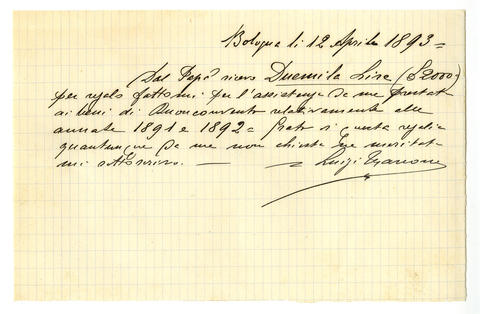 Bologna li 12 Aprile 1893 =
Dal Pepé ricevo Duemila Lire (£2000=)
per regalo fattomi per l'assistenza da me prestata
ai vini di Buonconvento relativamente alle
annate 1891 e 1892 = Grato di questa regalia
quantunque da me non chiesta né meritata
mi sottoscrivo. — = Luigi